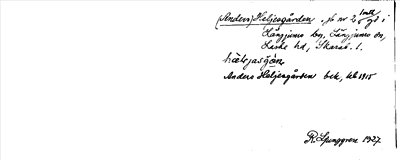 (Anders) Heljesgården, f. nr 2, 1 mtl
gd i
Långjums by, Långjums sn,
Laske hd, Skarab. l.
hæljasgå̄n
Anders Heljesgården bek, kb 1915
R. Ljunggren 1927.